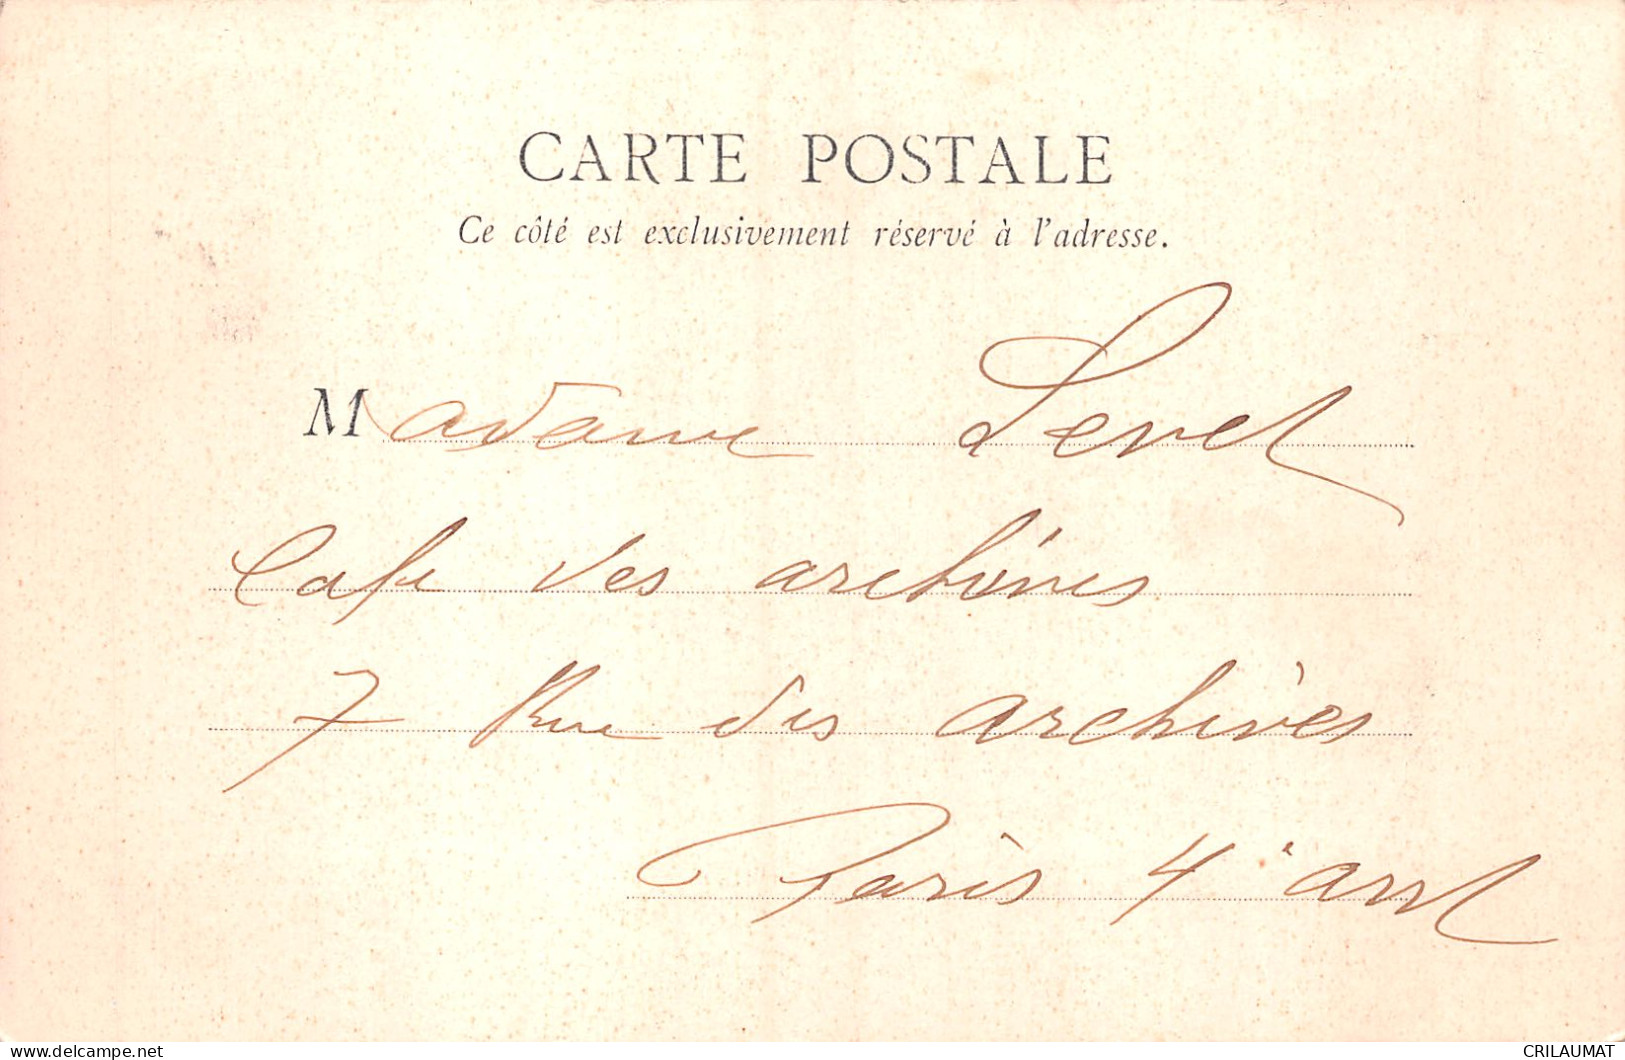 CARTE POSTALE
Ce côté est exclusivement réservé à l'adresse.
Madame Level
Cafe des archives
7 Rue des archives
Paris 4e arrt
delcampe.net
CRILAUMAT